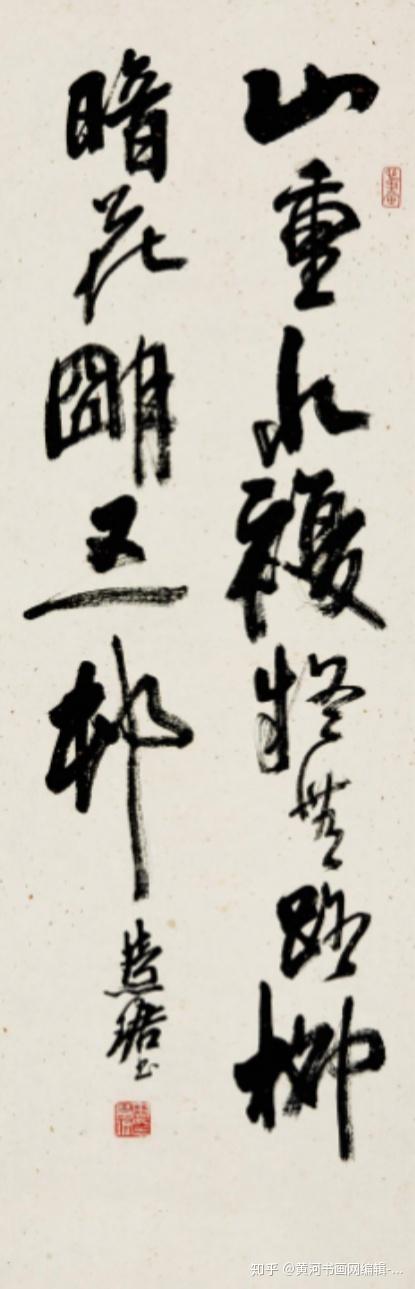 山重水複疑無路柳
暗花明又一邨
楚琚书
知乎 @黄河书画网编辑-...